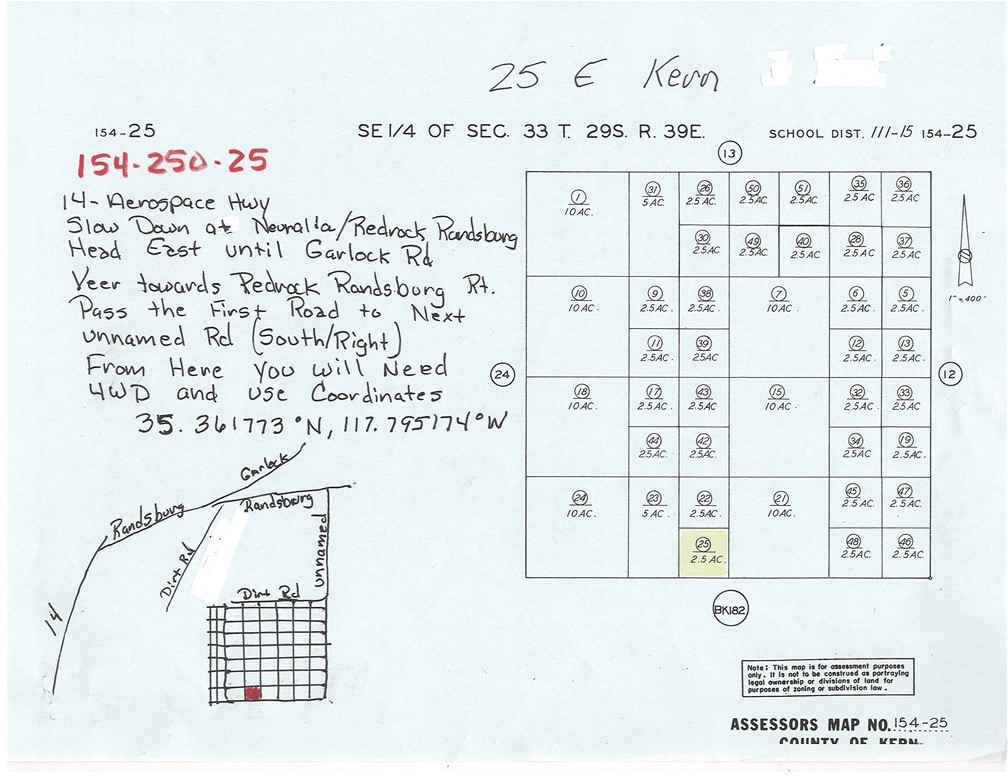 25 E Kern
154-25
SE1/4 OF SEC. 33 T. 29S. R. 39E.
SCHOOL DIST. 111-15 154-25
154-250-25
14- Aerospace Hwy
Slow Down at Neuralia/Redrock Randsburg
Head East until Garlock Rd
Veer towards Redrock Randsburg Rt.
Pass the First Road to Next
unnamed Rd (South/Right)
From Here you will Need
4WD and use Coordinates
35.361773°N, 117.795174°W
13
1
10 AC.
31
5 AC.
26
2.5 AC.
50
2.5AC.
51
2.5 AC.
35
2.5 AC.
36
2.5AC
30
2.5AC
49
2.5AC.
40
2.5AC
28
2.5AC
37
2.5AC.
1"=400'
10
10 AC.
9
2.5AC.
38
2.5AC.
7
10 AC.
6
2.5AC.
5
2.5AC.
11
2.5AC.
39
25AC
12
2.5AC.
13
2.5AC.
24
12
18
10 AC.
17
2.5 AC.
43
2.5AC.
15
10 AC.
32
2.5AC.
33
2.5AC.
44
2.5AC.
42
2.5AC.
34
2.5AC
19
2.5AC.
24
10 AC.
23
5 AC.
22
2.5AC.
21
10 AC.
45
2.5 AC.
47
2.5AC.
25
2.5 AC.
48
2.5AC.
46
2.5AC.
BK182
Garlock
Randsburg
Randsburg
unnamed
Dirt Rd
Dirt Rd
14
Note: This map is for assessment purposes
only. It is not to be construed as portraying
legal ownership or divisions of land for
purposes of zoning or subdivision law.
ASSESSORS MAP NO. 154-25
COUNTY OF KERN